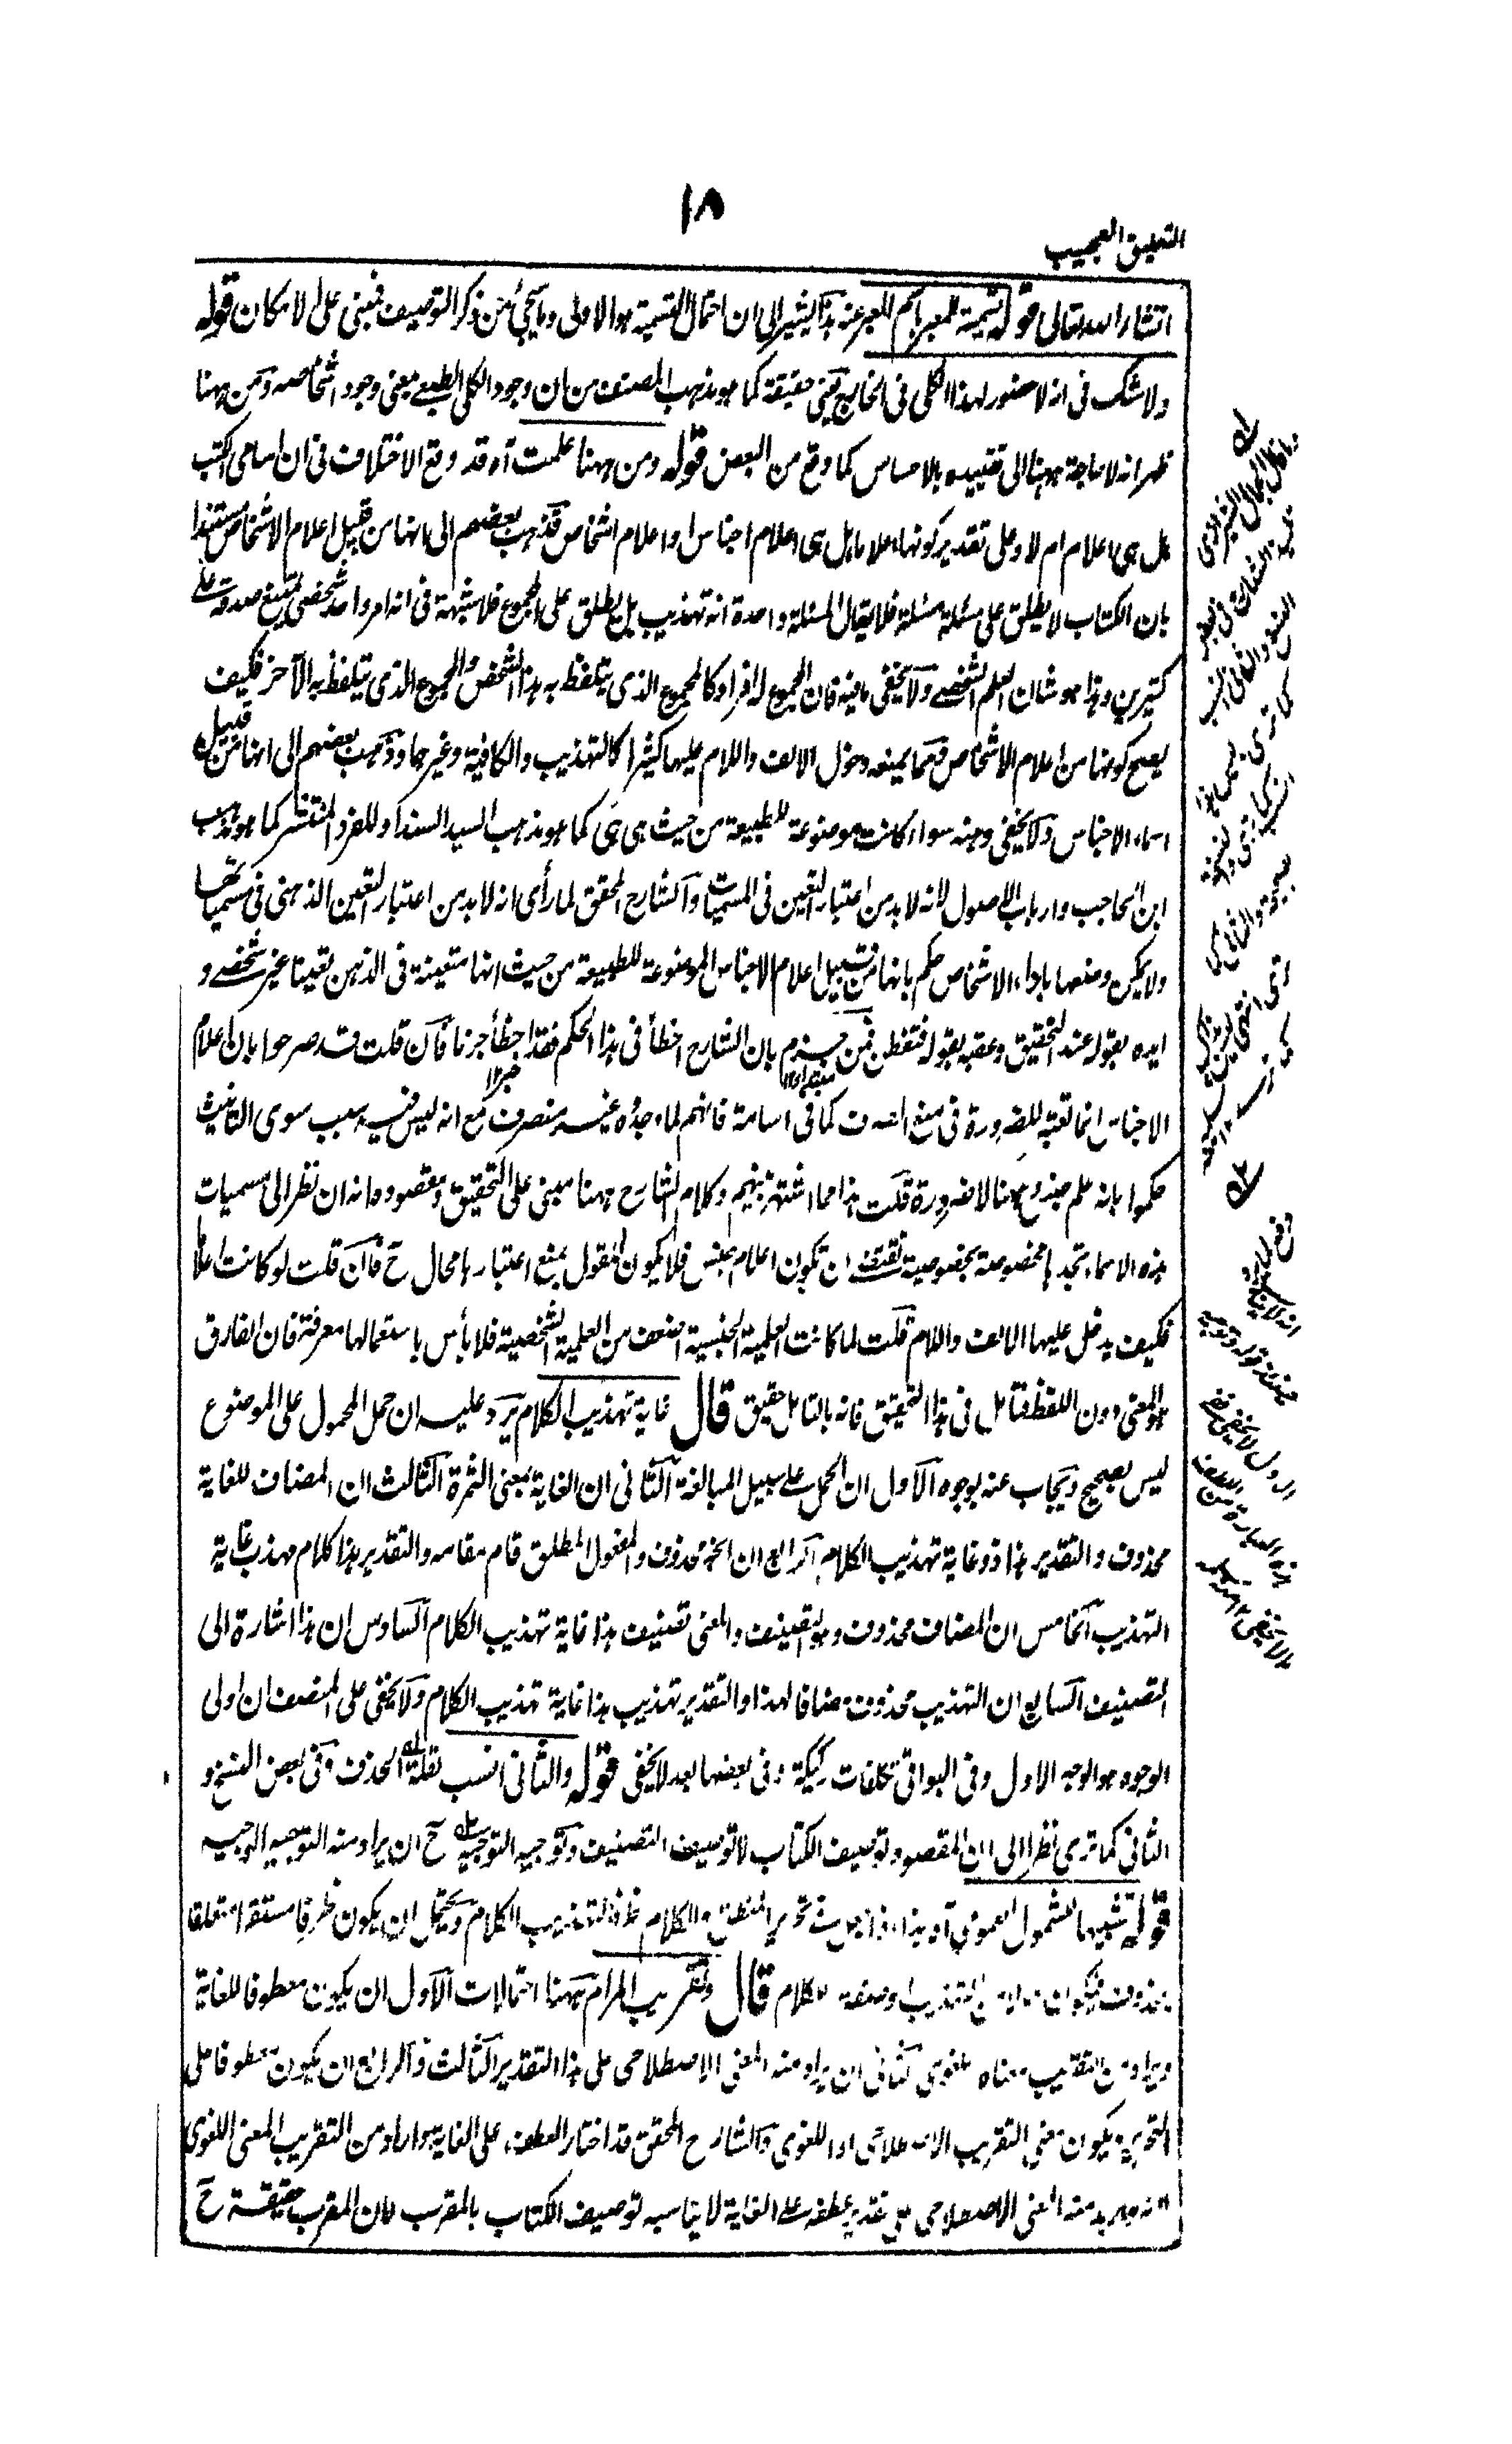 ١٨
التعليق العجيب
انشاء الله تعالى قوله تسمية للمعبر باسم المعبر عنه هذا يشير الى ان احتمال التسمية هو الاولى وما سيجئ من ذكر التوصيف فمبنى على الامكان قوله
ولا شك فى انه لا حضور لهذا الكلى فى الخارج يعنى حقيقة كما هو مذهب المصنف من ان وجود الكلى الطبعى معنى وجود اشخاصه ومن ههنا
ظهر انه لا حاجة ههنا الى تقييده بالاحساس كما وقع من البعض قوله ومن ههنا علمت آه قد وقع الاختلاف فى ان اسامى الكتب
هل هى اعلام ام لا وعلى تقدير كونها اعلاما هل هى اعلام اجناس او اعلام اشخاص فذهب بعضهم الى انها من قبيل اعلام الاشخاص مستندا
بان الكتاب لا يطلق على مسئلة مسئلة فلا يقال لمسئلة واحدة انه تهذيب بل يطلق على المجموع فلا شبهة فى انه امر واحد شخصى يمتنع صدقه على
كثيرين وهذا هو شان العلم الشخصى ولا يخفى ما فيه فان المجموع له افراد كالمجموع الذى يتلفظ به هذا الشخص والمجموع الذى يتلفظ به الآخر فكيف
يصح كونها من اعلام الاشخاص ومما يمنعه دخول الالف واللام عليها كثيرا كالتهذيب والكافية وغيرهما وذهب بعضهم الى انها من قبيل
اسماء الاجناس ولا يخفى وهنه سواء كانت موضوعة للطبيعة من حيث هى هى كما هو مذهب السيد السند او للفرد المنتشر كما هو مذهب
ابن الحاجب وارباب الاصول لانه لا بد من اعتبار التعين فى المسميات والشارح المحقق لما رأى انه لا بد من اعتبار التعين الذهنى فى مسمياتها
ولا يمكن وضعها بازاء الاشخاص حكم بانها من قبيل اعلام الاجناس الموضوعة للطبيعة من حيث انها متعينة فى الذهن تعينا غير شخصى و
ايده بقوله عند التحقيق وعقبه بقوله فتفطن فمن جزم بان الشارح اخطأ فى هذا الحكم فقد اخطأ جزما فان قلت قد صرحوا بان اعلام
الاجناس انما تعتبر للضرورة فى منع الصرف كما فى اسامة فانهم لما وجدوه غير منصرف مع انه ليس فيه سبب سوى التانيث
حكموا بانه علم جنس وههنا لا ضرورة قلت هذا مما اشتهر بينهم وكلام الشارح ههنا مبنى على التحقيق ومقصوده انه ان نظر الى مسميات
هذه الاسماء تجدها مخصوصة بخصوصية تقتضى ان تكون اعلام جنس فلا يكون للقول بمنع اعتبارها مجال ح فان قلت لو كانت اعلاما
فكيف يدخل عليها الالف واللام قلت لما كانت العلمية الجنسية اضعف من العلمية الشخصية فلا بأس باستعمالها معرفة فان الفارق
هو المعنى دون اللفظ فتامل فى هذا التحقيق فانه بالتامل حقيق قال غاية تهذيب الكلام يرد عليه ان حمل المحمول على الموضوع
ليس بصحيح ويجاب عنه بوجوه الاول ان الحمل على سبيل المبالغة الثانى ان الغاية بمعنى الثمرة الثالث ان المضاف للغاية
محذوف والتقدير هذا ذو غاية تهذيب الكلام الرابع ان الخبر محذوف والمفعول المطلق قام مقامه والتقدير هذا كلام مهذب غاية
التهذيب الخامس ان المضاف محذوف وهو التصنيف والمعنى تصنيف هذا غاية تهذيب الكلام السادس ان هذا اشارة الى
التصنيف السابع ان التهذيب محذوف مضافا لهذا والتقدير تهذيب هذا غاية تهذيب الكلام ولا يخفى على المنصف ان اولى
الوجوه هو الوجه الاول وفى البواقى تكلفات ركيكة وفى بعضها بعد لا يخفى قوله والثانى انسب لقلة الحذف وفى بعض النسخ و
الثانى كما ترى نظرا الى ان المقصود توصيف الكتاب لا توصيف التصنيف وتوجيه التوجيه ح ان يراد منه التوجيه الوجيه
قوله تشبيها للشمول العمومى آه هذا اذا جعل فى تحرير المنطق والكلام ظرفا لتهذيب الكلام ويحتمل ان يكون ظرفا مستقرا متعلقا
بمحذوف فيكون حالا من التهذيب او صفة للكلام قال وتقريب المرام ههنا احتمالات الاول ان يكون معطوفا للغاية
ويراد من التقريب معناه اللغوى الثانى ان يراد منه المعنى الاصطلاحى على هذا التقدير الثالث والرابع ان يكون معطوفا على
التحرير ويكون معنى التقريب الاصطلاحى او اللغوى والشارح المحقق قد اختار العطف على الغاية واراد من التقريب المعنى اللغوى
ولم يرد منه المعنى الاصطلاحى على تقدير عطفه على الغاية لا يناسبه توصيف الكتاب بالمقرب فان المقرب حقيقة ح